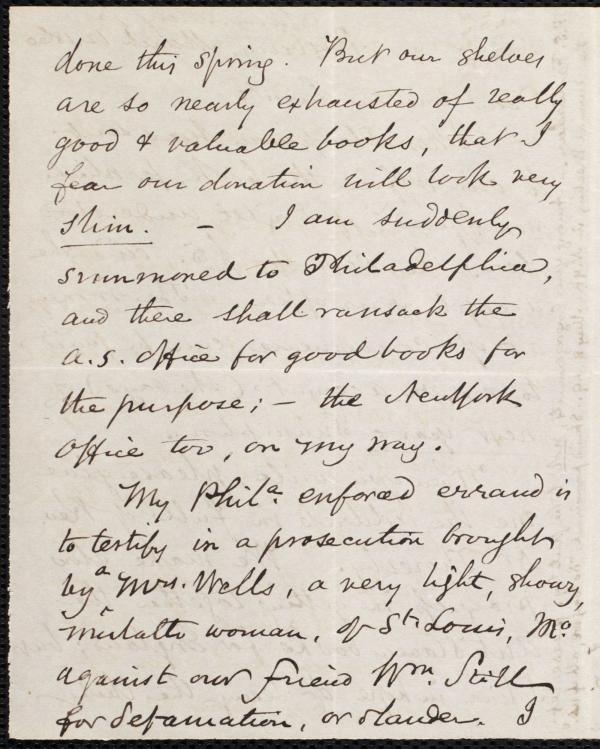 done this spring. But our shelves
are so nearly exhausted of really
good & valuable books, that I
fear our donation will look very
slim. – I am suddenly
summoned to Philadelphia,
and there shall ransack the
A.S. Office for good books for
the purpose; – the New York
Office too, on my way.
My Phila. enforced errand is
to testify in a prosecution brought
by a Mrs. Wells, a very light, showy,
mulatto woman, of St. Louis, Mo.
against our friend Wm. Still
for defamation, or slander. I